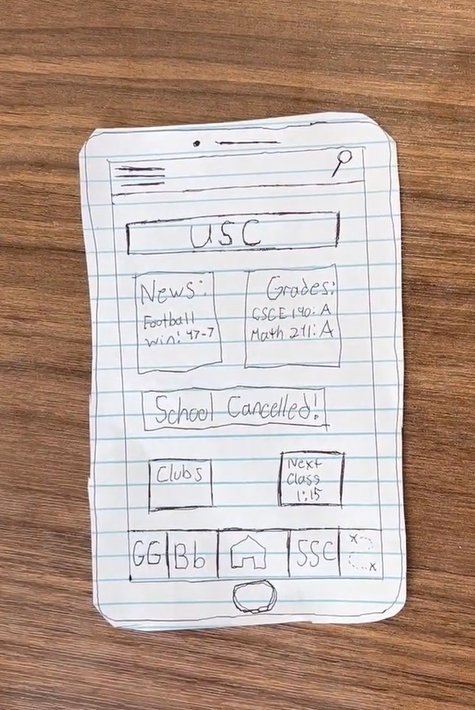 USC
News:
Football
win: 47-7
Grades:
CSCE 190: A
Math 241: A
School Cancelled!
Clubs
Next
Class
1:15
GG Bb SSC
x
x